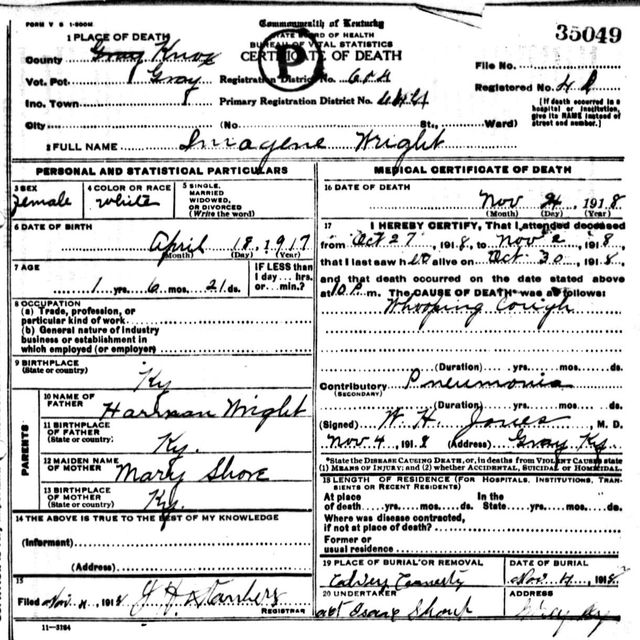 FORM V S 1-500M
Commonwealth of Kentucky
STATE BOARD OF HEALTH
BUREAU OF VITAL STATISTICS
CERTIFICATE OF DEATH
35049
1 PLACE OF DEATH
County Gray Knox
Vot. Pct Gray
Inc. Town
City (No St., Ward)
Registration District No.
Primary Registration District No.
File No.
Registered No.
[If death occurred in a hospital or institution, give its NAME instead of street and number.]
P
2 FULL NAME Imagene Wright
PERSONAL AND STATISTICAL PARTICULARS
3 SEX Female
4 COLOR OR RACE white
5 SINGLE, MARRIED WIDOWED, OR DIVORCED (Write the word)
6 DATE OF BIRTH
April 18, 1917
(Month) (Day) (Year)
7 AGE
1 yrs. 6 mos. 21 ds.
IF LESS than 1 day... hrs. or... min.?
8 OCCUPATION
(a) Trade, profession, or particular kind of work
(b) General nature of industry business or establishment in which employed (or employer)
9 BIRTHPLACE
(State or country)
Ky
PARENTS
10 NAME OF FATHER Harlman Wright
11 BIRTHPLACE OF FATHER (State or country) Ky.
12 MAIDEN NAME OF MOTHER Mary Shore
13 BIRTHPLACE OF MOTHER (State or country) Ky.
14 THE ABOVE IS TRUE TO THE BEST OF MY KNOWLEDGE
(Informant)
(Address)
15
Filed Nov. 4, 1918 REGISTRAR
11-3184
MEDICAL CERTIFICATE OF DEATH
16 DATE OF DEATH
Nov 1918
(Month) (Day) (Year)
17 I HEREBY CERTIFY, That I attended deceased
from Oct 27, 1918, to Nov 2, 1918,
that I last saw her alive on Oct. 30, 1918,
and that death occurred on the date stated above
at 10 P m. The CAUSE OF DEATH* was as follows:
Whooping Cough
(Duration) yrs. mos. ds.
Contributory Pneumonia
(SECONDARY)
(Duration) yrs. mos. ds.
(Signed) W. H. Jones, M. D.
Nov. 4, 1918 (Address) Gray Ky.
*State the DISEASE CAUSING DEATH, or, in deaths from VIOLENT CAUSES state
(1) MEANS OF INJURY; and (2) whether ACCIDENTAL, SUICIDAL or HOMICIDAL.
18 LENGTH OF RESIDENCE (FOR HOSPITALS, INSTITUTIONS, TRANSIENTS OR RECENT RESIDENTS)
At place of death yrs. mos. ds. In the State yrs. mos. ds.
Where was disease contracted, if not at place of death?
Former or usual residence
19 PLACE OF BURIAL OR REMOVAL
DATE OF BURIAL
Nov. 4, 1918
20 UNDERTAKER
ADDRESS
Gray Ky